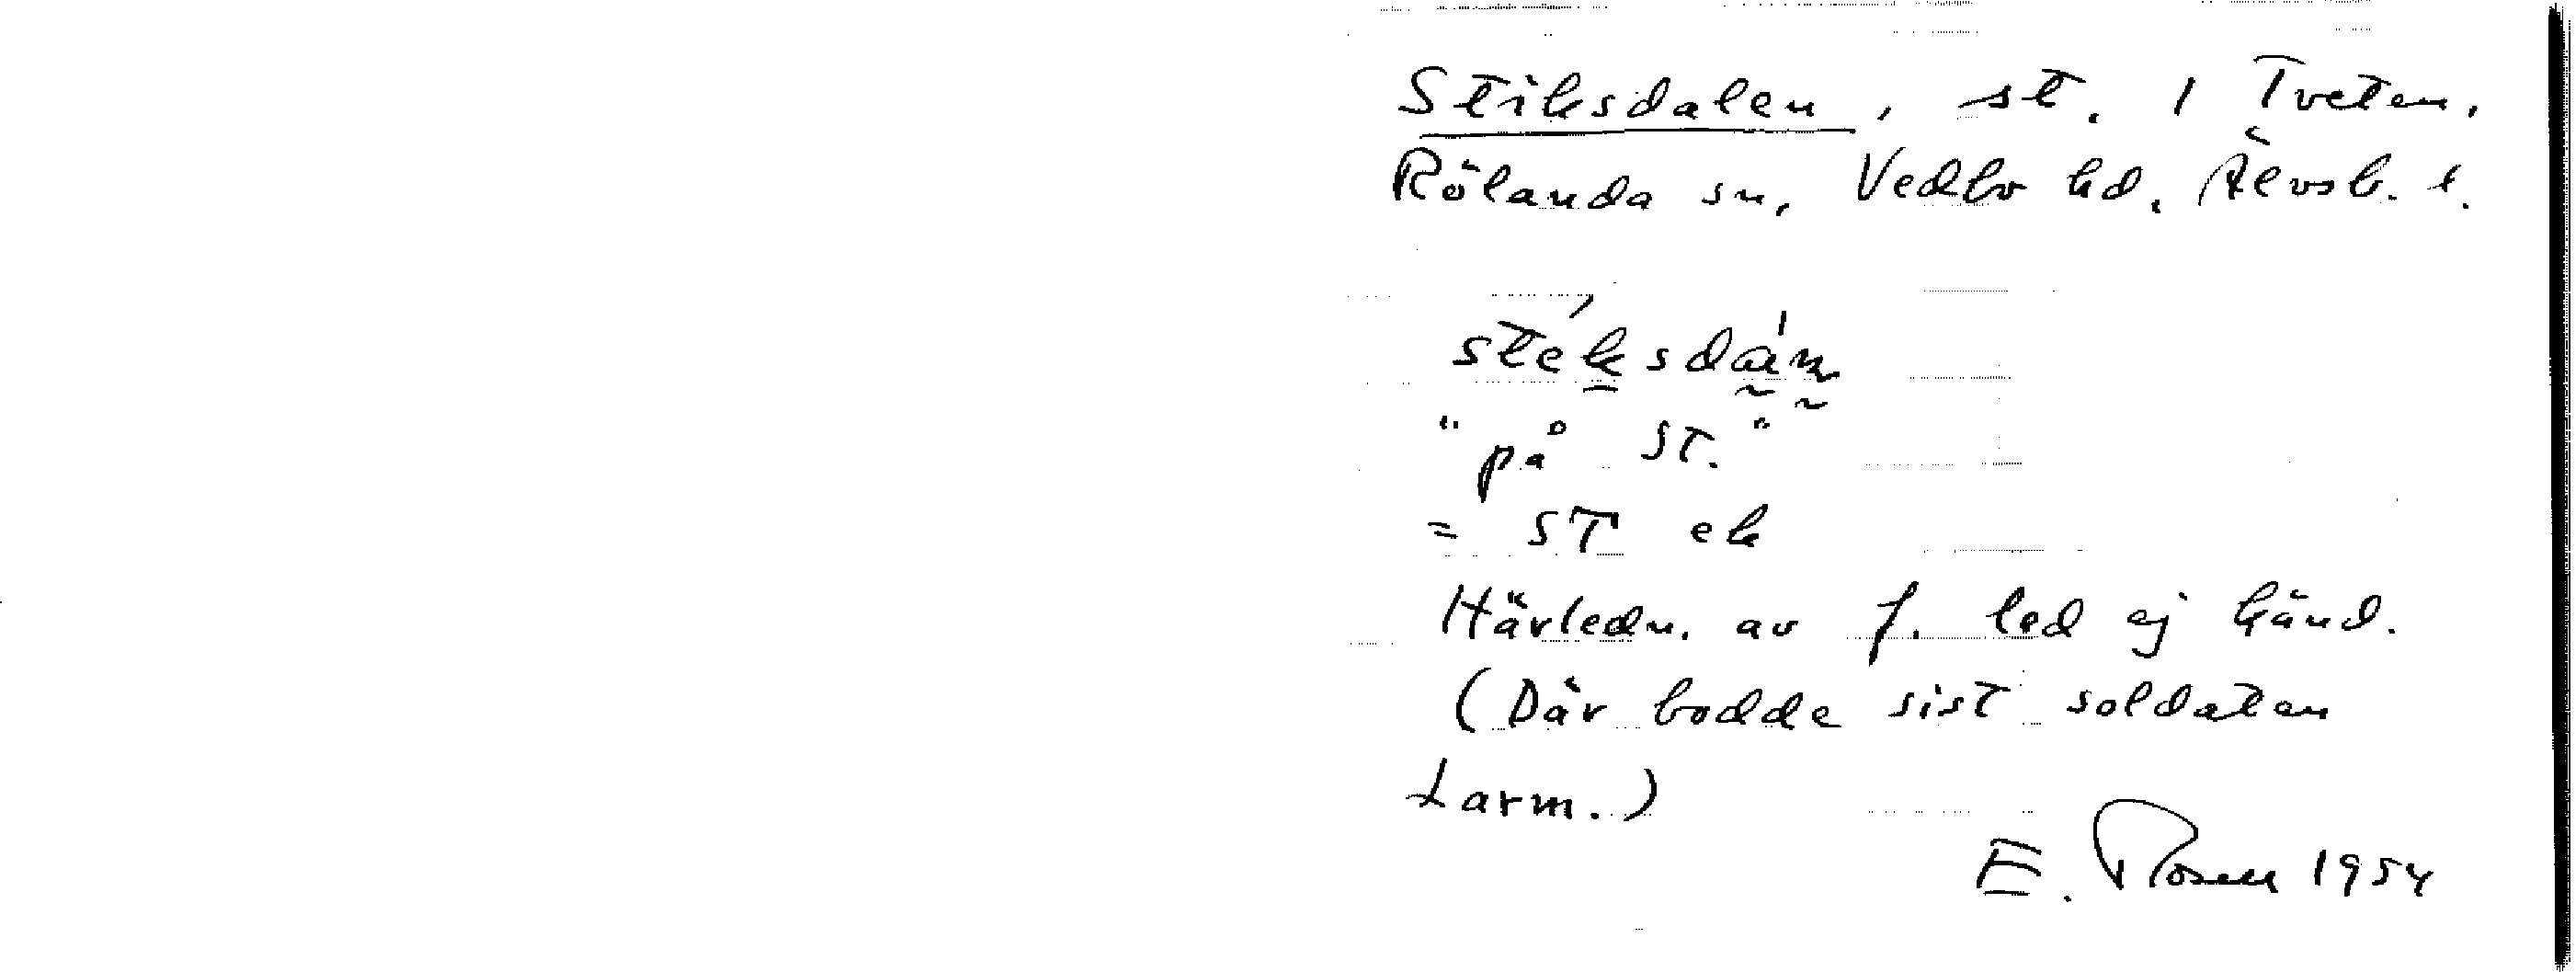 Stiksdalen, st. 1 Tveten,
Rölanda sn, Vedbo hd, Älvsb. l.
"på st."
= ST ek
Härledn. av f. led ej känd.
(Där bodde sist soldaten
Larm.)
E. Rosell 1954